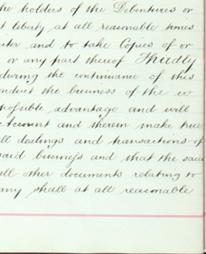 the holders of the Debentures or
at liberty at all reasonable times
and to take Copies of or
or any part thereof Thirdly
during the continuance of this
conduct the business of the co
profitable advantage and will
account and therein make true
all dealings and transactions of
said business and that the said
all other documents relating to
any shall at all reasonable